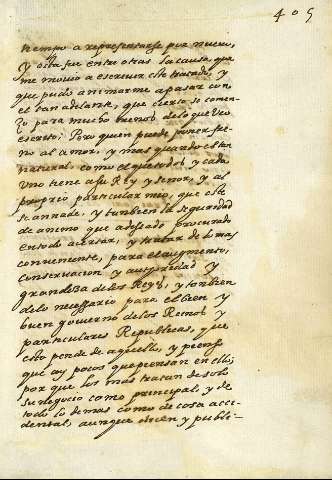 405
tiempo a representarse por nuevo,
y esta fue entre otras la causa, que
me movio a escreuir este tratado, y
que pudo animarme a pasar con
el tan adelante, que cierto se comen-
ço para mucho menos de lo que veo
escrito; Pero quien puede poner fre-
no al amor, y mas quando es tan
natural como el que todos y cada
uno tiene a su Rey y señor, y al
proprio particular mio, que este
se annade, y tambien la seguridad
de animo que a desseado procurado
en todo acertar, y tratar de lo mas
conveniente, para el augmento,
conservacion y autoridad y
grandeza de los Reyes, y tambien
de lo necessario para el bien y
buen govierno de los Reinos y
particulares Republicas, que
esto pende de aquello, y pienso
que ay pocos que piensan en ello;
por que los mas tratan de solo
su negocio como principal, y de
todo lo demas como de cosa acci-
dental, aunque dicen y publi-